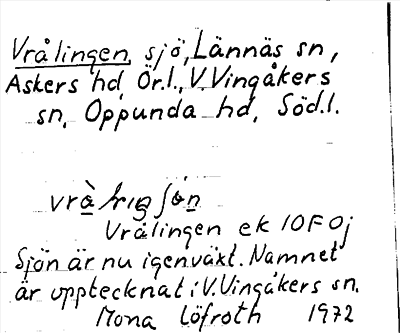 Vrålingen, sjö, Lännäs sn,
Askers hd, Ör.l., V. Vingåkers
sn, Oppunda hd, Söd.l.
Vrålingen ek 10F0j
Sjön är nu igenväxt. Namnet
är upptecknat i V. Vingåkers sn.
Mona Löfroth 1972